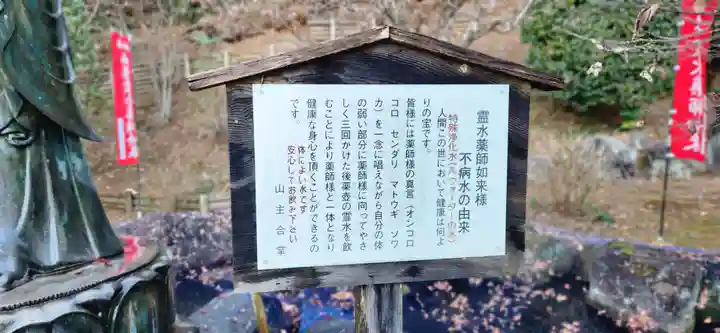 霊水薬師如来様
不病水の由来
特殊浄化水
人間この世において健康は何よ
りの宝です。
皆様には薬師様の真言（オンコロ
コロ　センダリ　マトウギ　ソワ
カ）を一念に唱えながら自分の体
の弱い部分に薬師様に向ってやさ
しく三回かけた後薬壺の霊水を飲
むことにより薬師様と一体となり
健康な身心を頂くことができるの
です。
体によい水です
安心してお飲み下さい
山主合掌